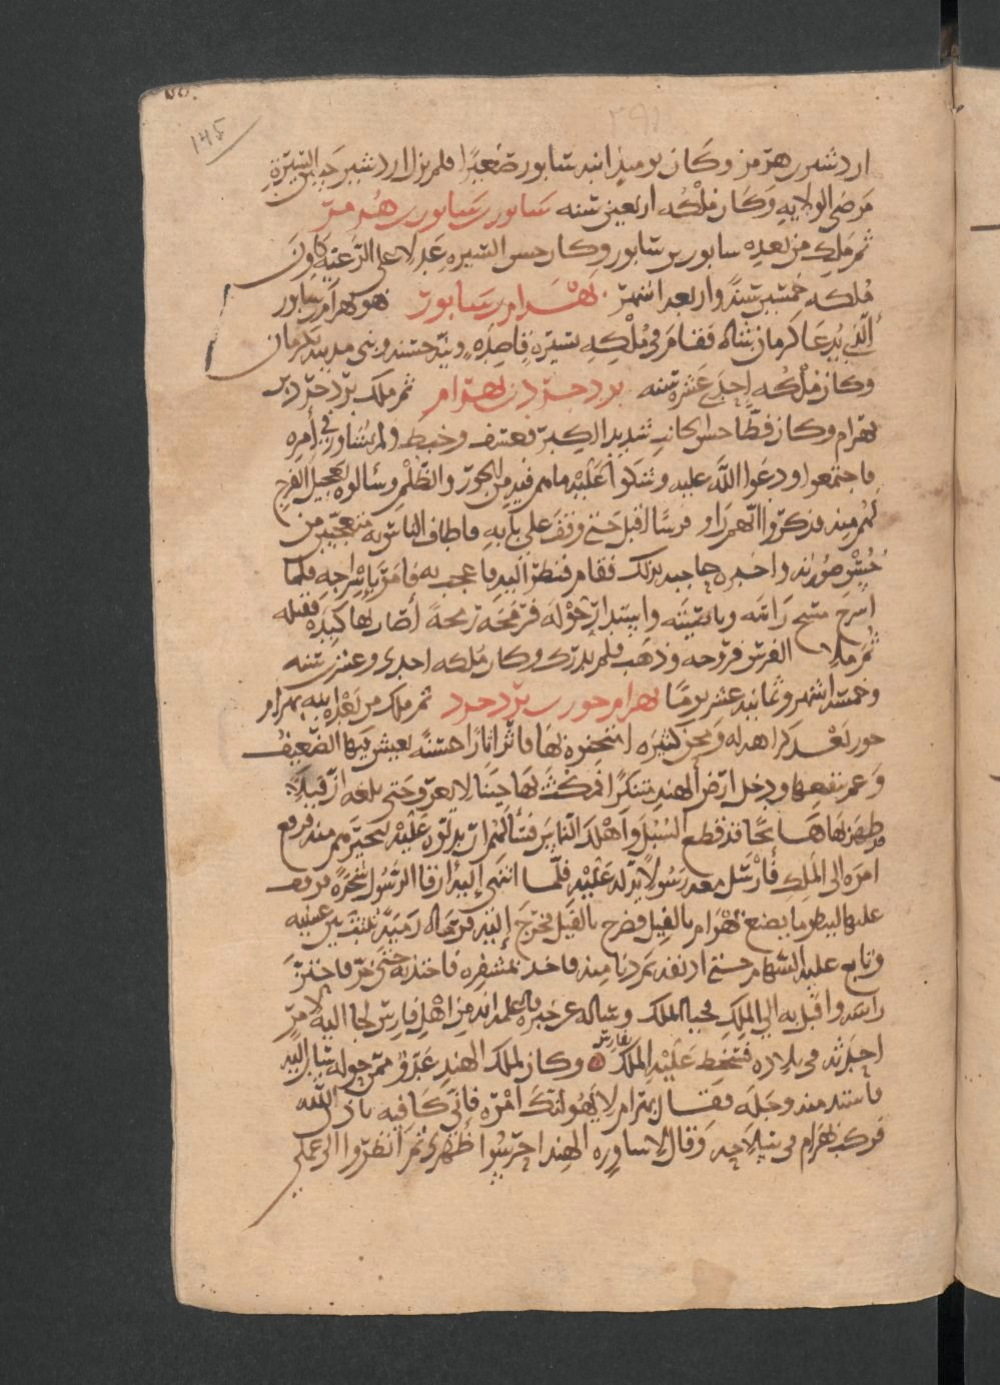 ١٤٥
اردشير بن هرمز وكان يوميذ ابنه سابور صغيرا فلم يزل اردشير حسن السيرة
مرضي الولايه وكان ملكه اربعين سنه سابور بن سابور بن هرمز
ثم ملك من بعده سابور بن سابور وكان حسن السيره عدلا على الرعيه وكان
ملكه خمسين سنة واربعه اشهر بهرام بن سابور فهو بهرام بن سابور
الذي يدعا كرمان شاه فقام في ملكه بسيرة قاصده ونية حسنه وبنى مدينه بكرمان
وكان ملكه احدى عشره سنه يزدجرد بن بهرام ثم ملك يزدجرد بن
بهرام وكان فظا خشن الجانب شديد الكبر فعسف وخبط ولم يشاور في امره
فاجتمعوا ودعوا الله عليه وشكوا اليه ما هم فيه من الجور والظلم وسالوه تعجيل الفرج
لهم منه فذكروا انهم راو فرسا اقبل حتى وقف على بابه فاطاف الناس به متعجبين من
حسن صورته واخبره حاجبه بذلك فقام فنظر اليه فاعجب به فامر باسراجه فلما
اسرج مسح راسه وناصيته واستدار حوله فرمحه رمحة اصاب بها كبده فقتله
ثم ملا الفرس فروجه وذهب فلم يدرك وكان ملكه احدى وعشرين سنه
وخمسه اشهر وثمانيه عشر يوما بهرام جور بن يزدجرد ثم ملك من بعده ابنه بهرام
جور بعد كراهه له ومحن كثيره امتحنوه بها فاثر اثارا حسنة يعيش فيها الضعيف
وعم نفعها ودخل ارض الهند متنكرا فمكث بها حينا لا يعرف حتى بلغه ان فيلا
ظهر بها هائجا قد قطع السبل واهلك الناس فسألهم ان يدلوه عليه ليريحهم منه فرفع
امره الى الملك فأرسل معه رسولا يدله عليه فلما انتهى اليه ارقا الرسول شجرة فوقف
عليها لينظر ما يصنع بهرام بالفيل فصرخ بالفيل فخرج اليه فرماه رمية ثبتت بين عينيه
وتابع عليه السهام حتى اذ نفذهم دنا منه فاخذ بمشفره فاجتذبه حتى خر فاحتز
راسه واقبل به الى الملك فحباه الملك وساله عن خبره فاعلمه انه من اهل فارس لجا اليه لامر
احدثه في بلاده فسخط عليه الملك بفارس وكان لملك الهند عدو ممن حوله سار اليه
فاشتد منه وجله فقال بهرام لا يهولنك امره فاني كافيه باذن الله
فركب بهرام في سلاحه وقال لاساوره الهند احرسوا ظهري ثم انظروا الى عملي